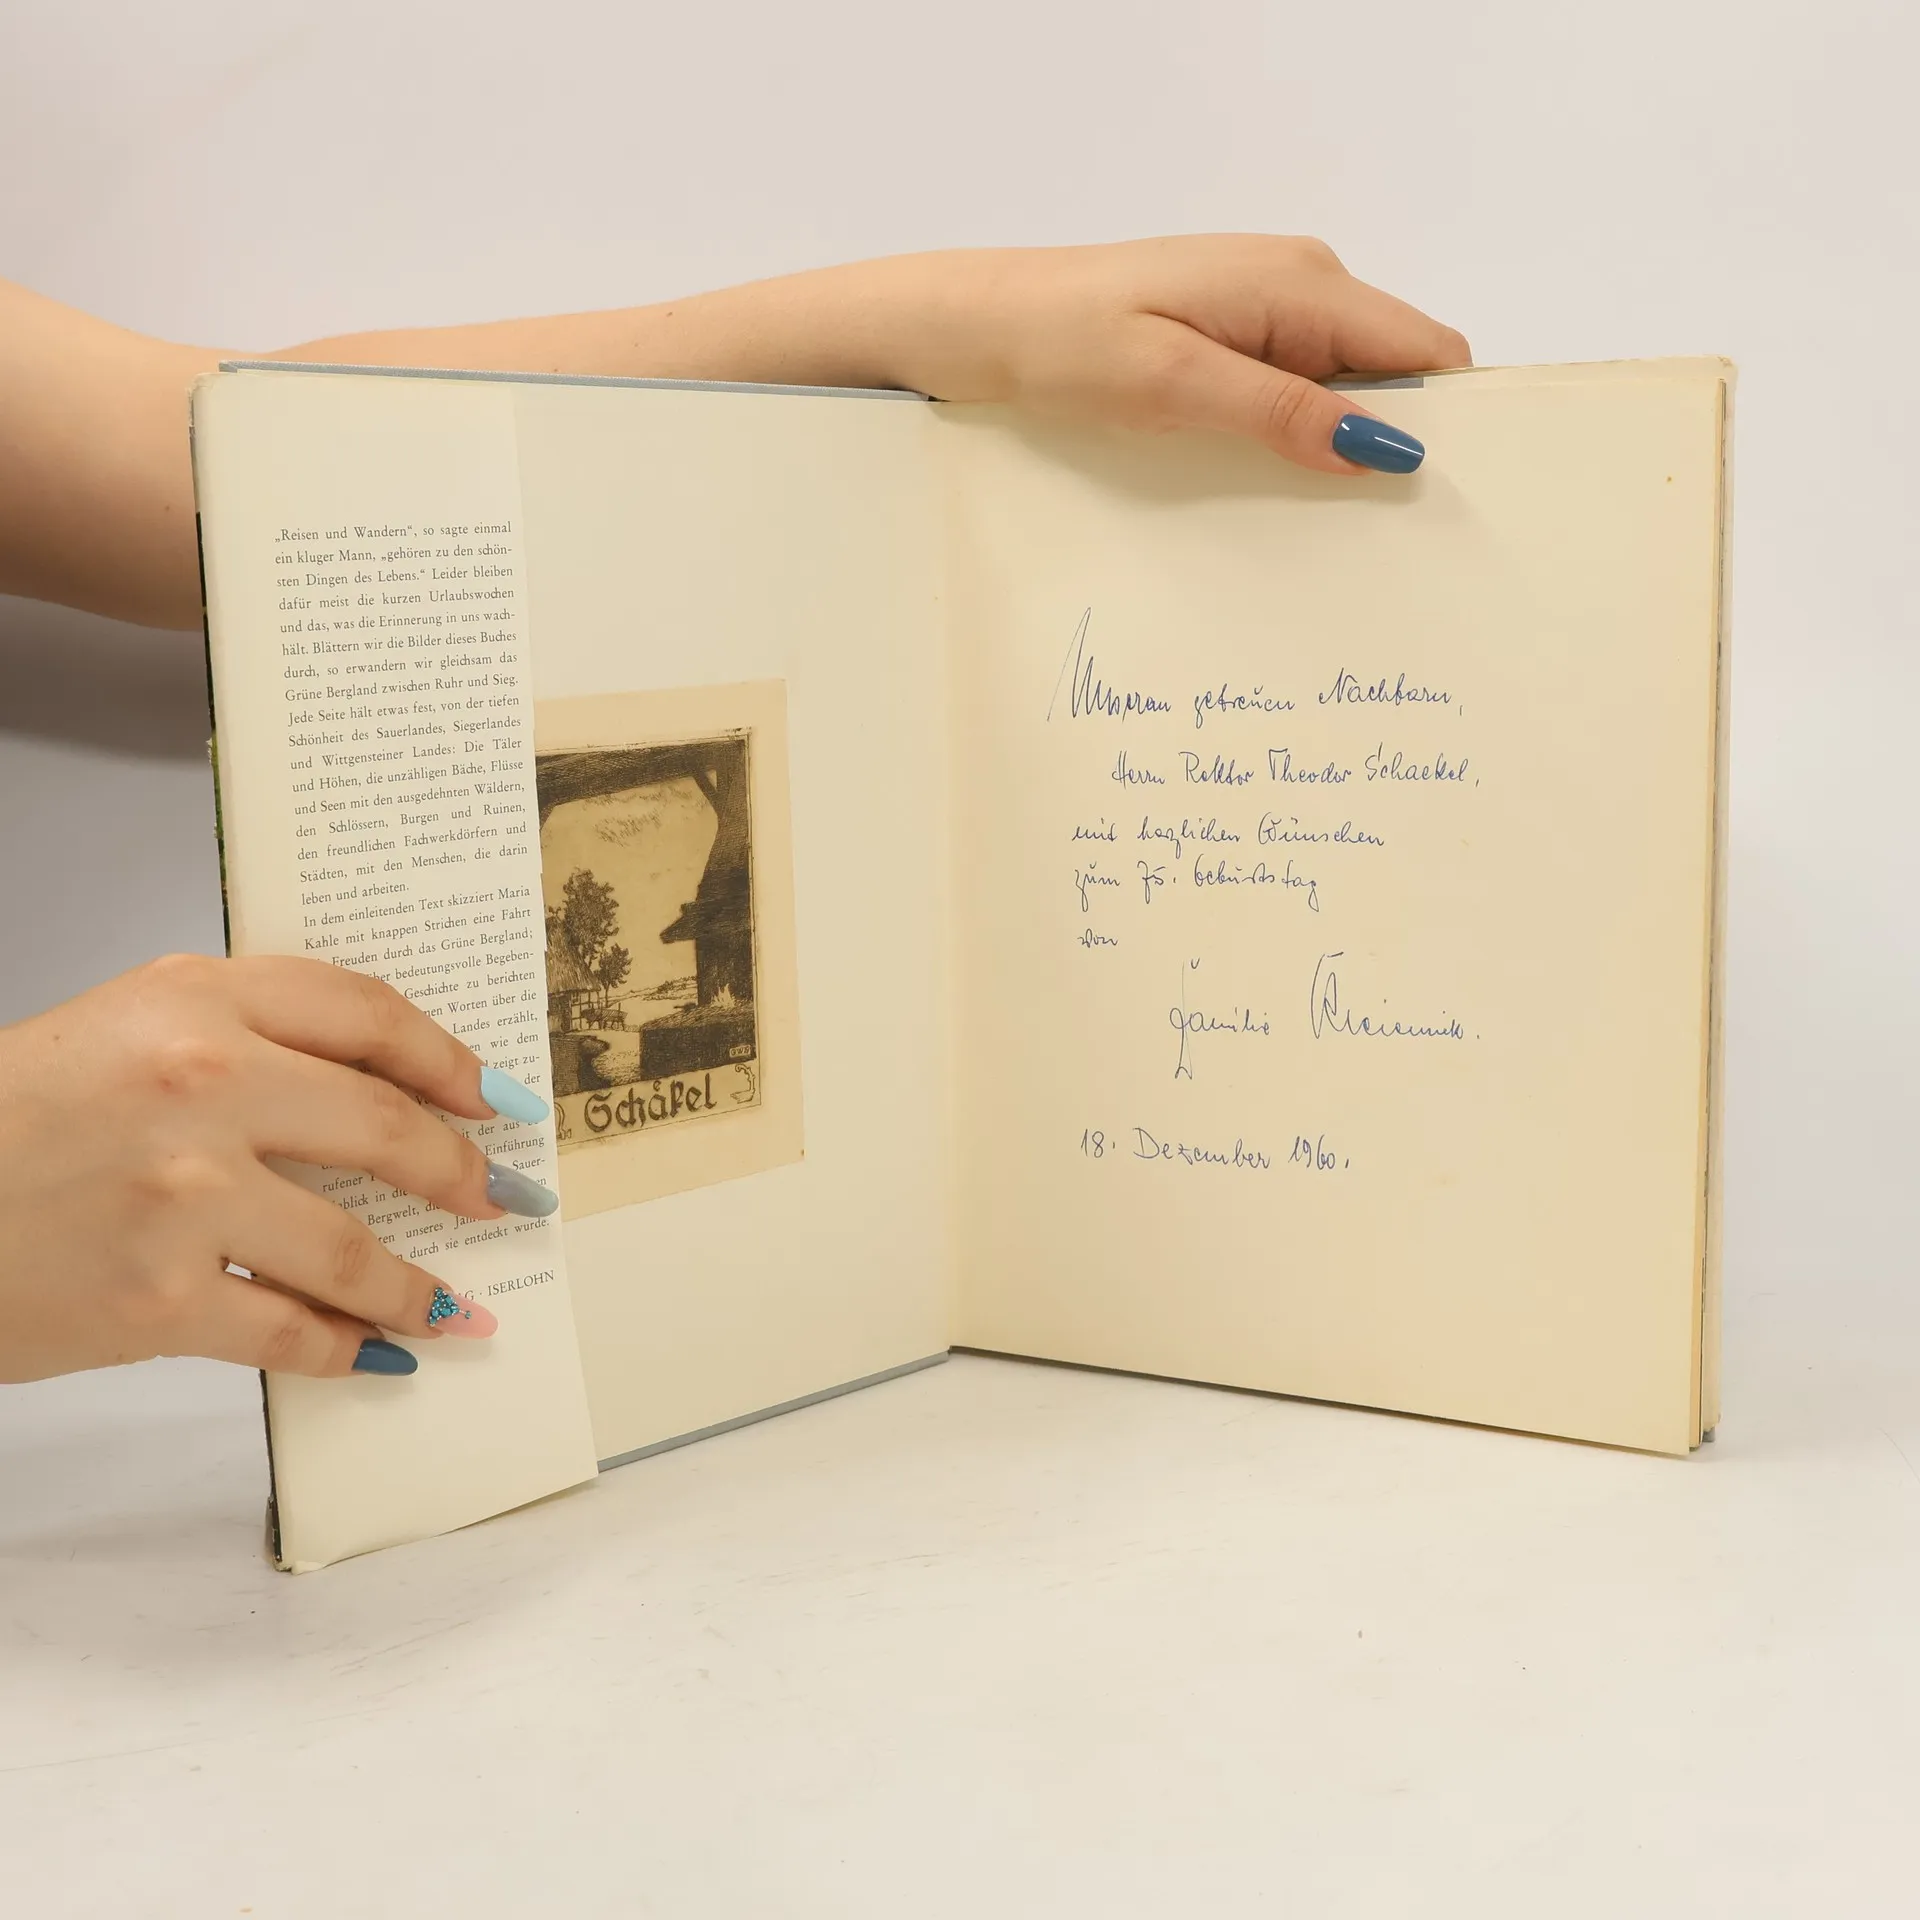 „Reisen und Wandern“, so sagte einmal
ein kluger Mann, „gehören zu den schön-
sten Dingen des Lebens.“ Leider bleiben
dafür meist die kurzen Urlaubswochen
und das, was die Erinnerung in uns wach-
hält. Blättern wir die Bilder dieses Buches
durch, so erwandern wir gleichsam das
Grüne Bergland zwischen Ruhr und Sieg.
Jede Seite hält etwas fest, von der tiefen
Schönheit des Sauerlandes, Siegerlandes
und Wittgensteiner Landes: Die Täler
und Höhen, die unzähligen Bäche, Flüsse
und Seen mit den ausgedehnten Wäldern,
den Schlössern, Burgen und Ruinen,
den freundlichen Fachwerkdörfern und
Städten, mit den Menschen, die darin
leben und arbeiten.
In dem einleitenden Text skizziert Maria
Kahle mit knappen Strichen eine Fahrt
Freuden durch das Grüne Bergland;
über bedeutungsvolle Begeben-
Geschichte zu berichten
Worten über die
Landes erzählt,
wie dem
zeigt zu-
der
mit der aus
Einführung
Sauer-
rufener
in die
Bergwelt,
unseres
durch sie entdeckt wurde.
ISERLOHN
Schäkel
GWB
Unseren getreuen Nachbarn,
Herrn Rektor Theodor Schaekel,
mit herzlichen Wünschen
zum 75. Geburtstag
von
Familie
18. Dezember 1960.